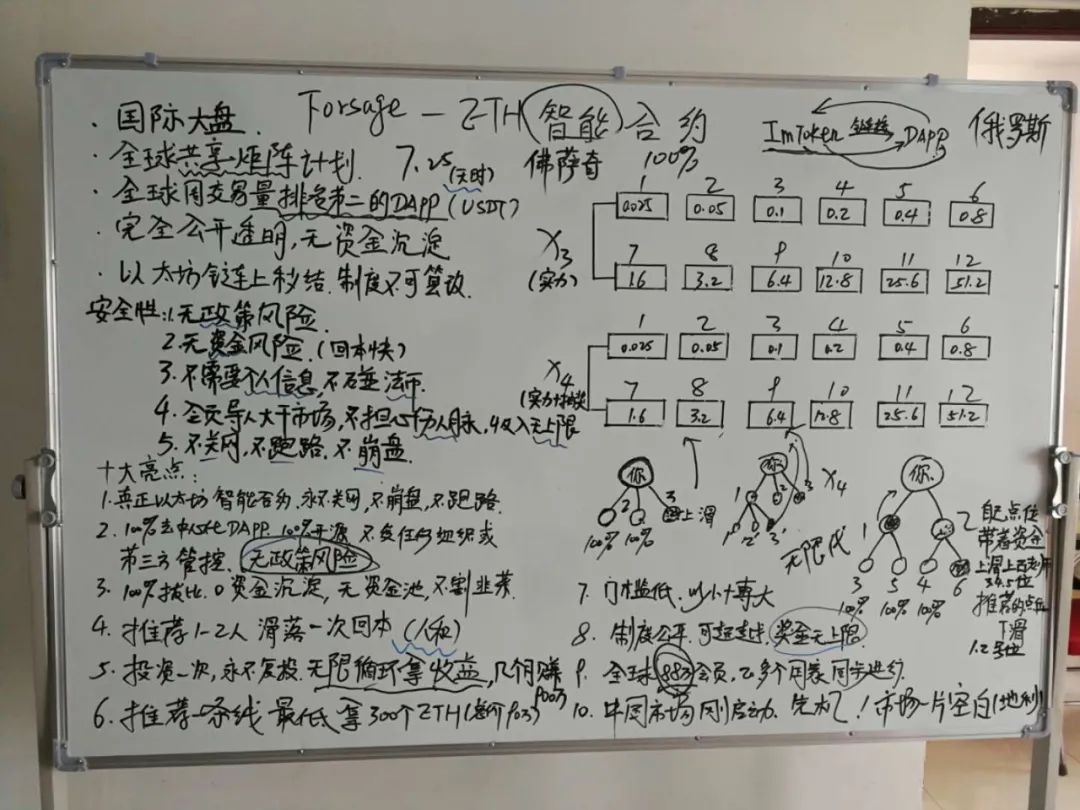 Forsage - ZTH 智能合约
ImToken DAPP 俄罗斯
· 国际大盘.
· 全球共享矩阵计划. 7.25 (天时)
佛萨奇 100%
· 全球周交易量排名第二的DAPP (USDT)
· 完全公开透明,无资金沉淀
· 以太坊链上秒结.制度不可篡改.
安全性:1.无政策风险.
2.无资金风险.(回本快)
3.不需要个人信息,不碰法币.
4.全员导入大市场,不担心人脉,收入无上限
5.不关网,不跑路,不崩盘.
X3
(实力)
1 2 3 4 5 6
0.025 0.05 0.1 0.2 0.4 0.8
7 8 9 10 11 12
1.6 3.2 6.4 12.8 25.6 51.2
X4
1 2 3 4 5 6
0.025 0.05 0.1 0.2 0.4 0.8
7 8 9 10 11 12
1.6 3.2 6.4 12.8 25.6 51.2
十大亮点:
1.真正以太坊智能合约,永不关网,不崩盘,不跑路.
2.100%去中心化DAPP.100%开源 不受任何组织或
第三方管控.无政策风险
3.100%拨比.0资金沉淀,无资金池,不割韭菜.
4.推荐1-2人滑落一次回本(人和)
5.投资一次,永不复投.无限循环拿收益,几个月赚
6.推荐一条线最低拿300个ZTH
你
1 2 3
上滑
100% 100%
你
1 2 3
1 2 3
X4
无限代
你
1 2
3 5 4 6
100% 100% 100%
自己点位
带着资金
上滑上面老师
3.4.5位
推荐的点位
下滑
1.2号位
7.门槛低.以小博大
8.制度公平.可超越.奖金无上限
9.全球88万会员,20多个国家同步进行.
10.中国市场刚启动.先机!市场一片空白(地利)